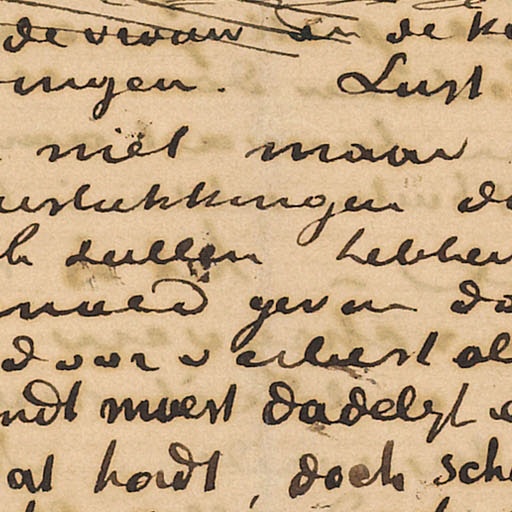 de vrouw en de ke
ingen. Lust
niet maar
uislukkingen da
h zullen hebben
moed geven da
door verliest al
ndt moest dadelyk
at hadt, doch sch